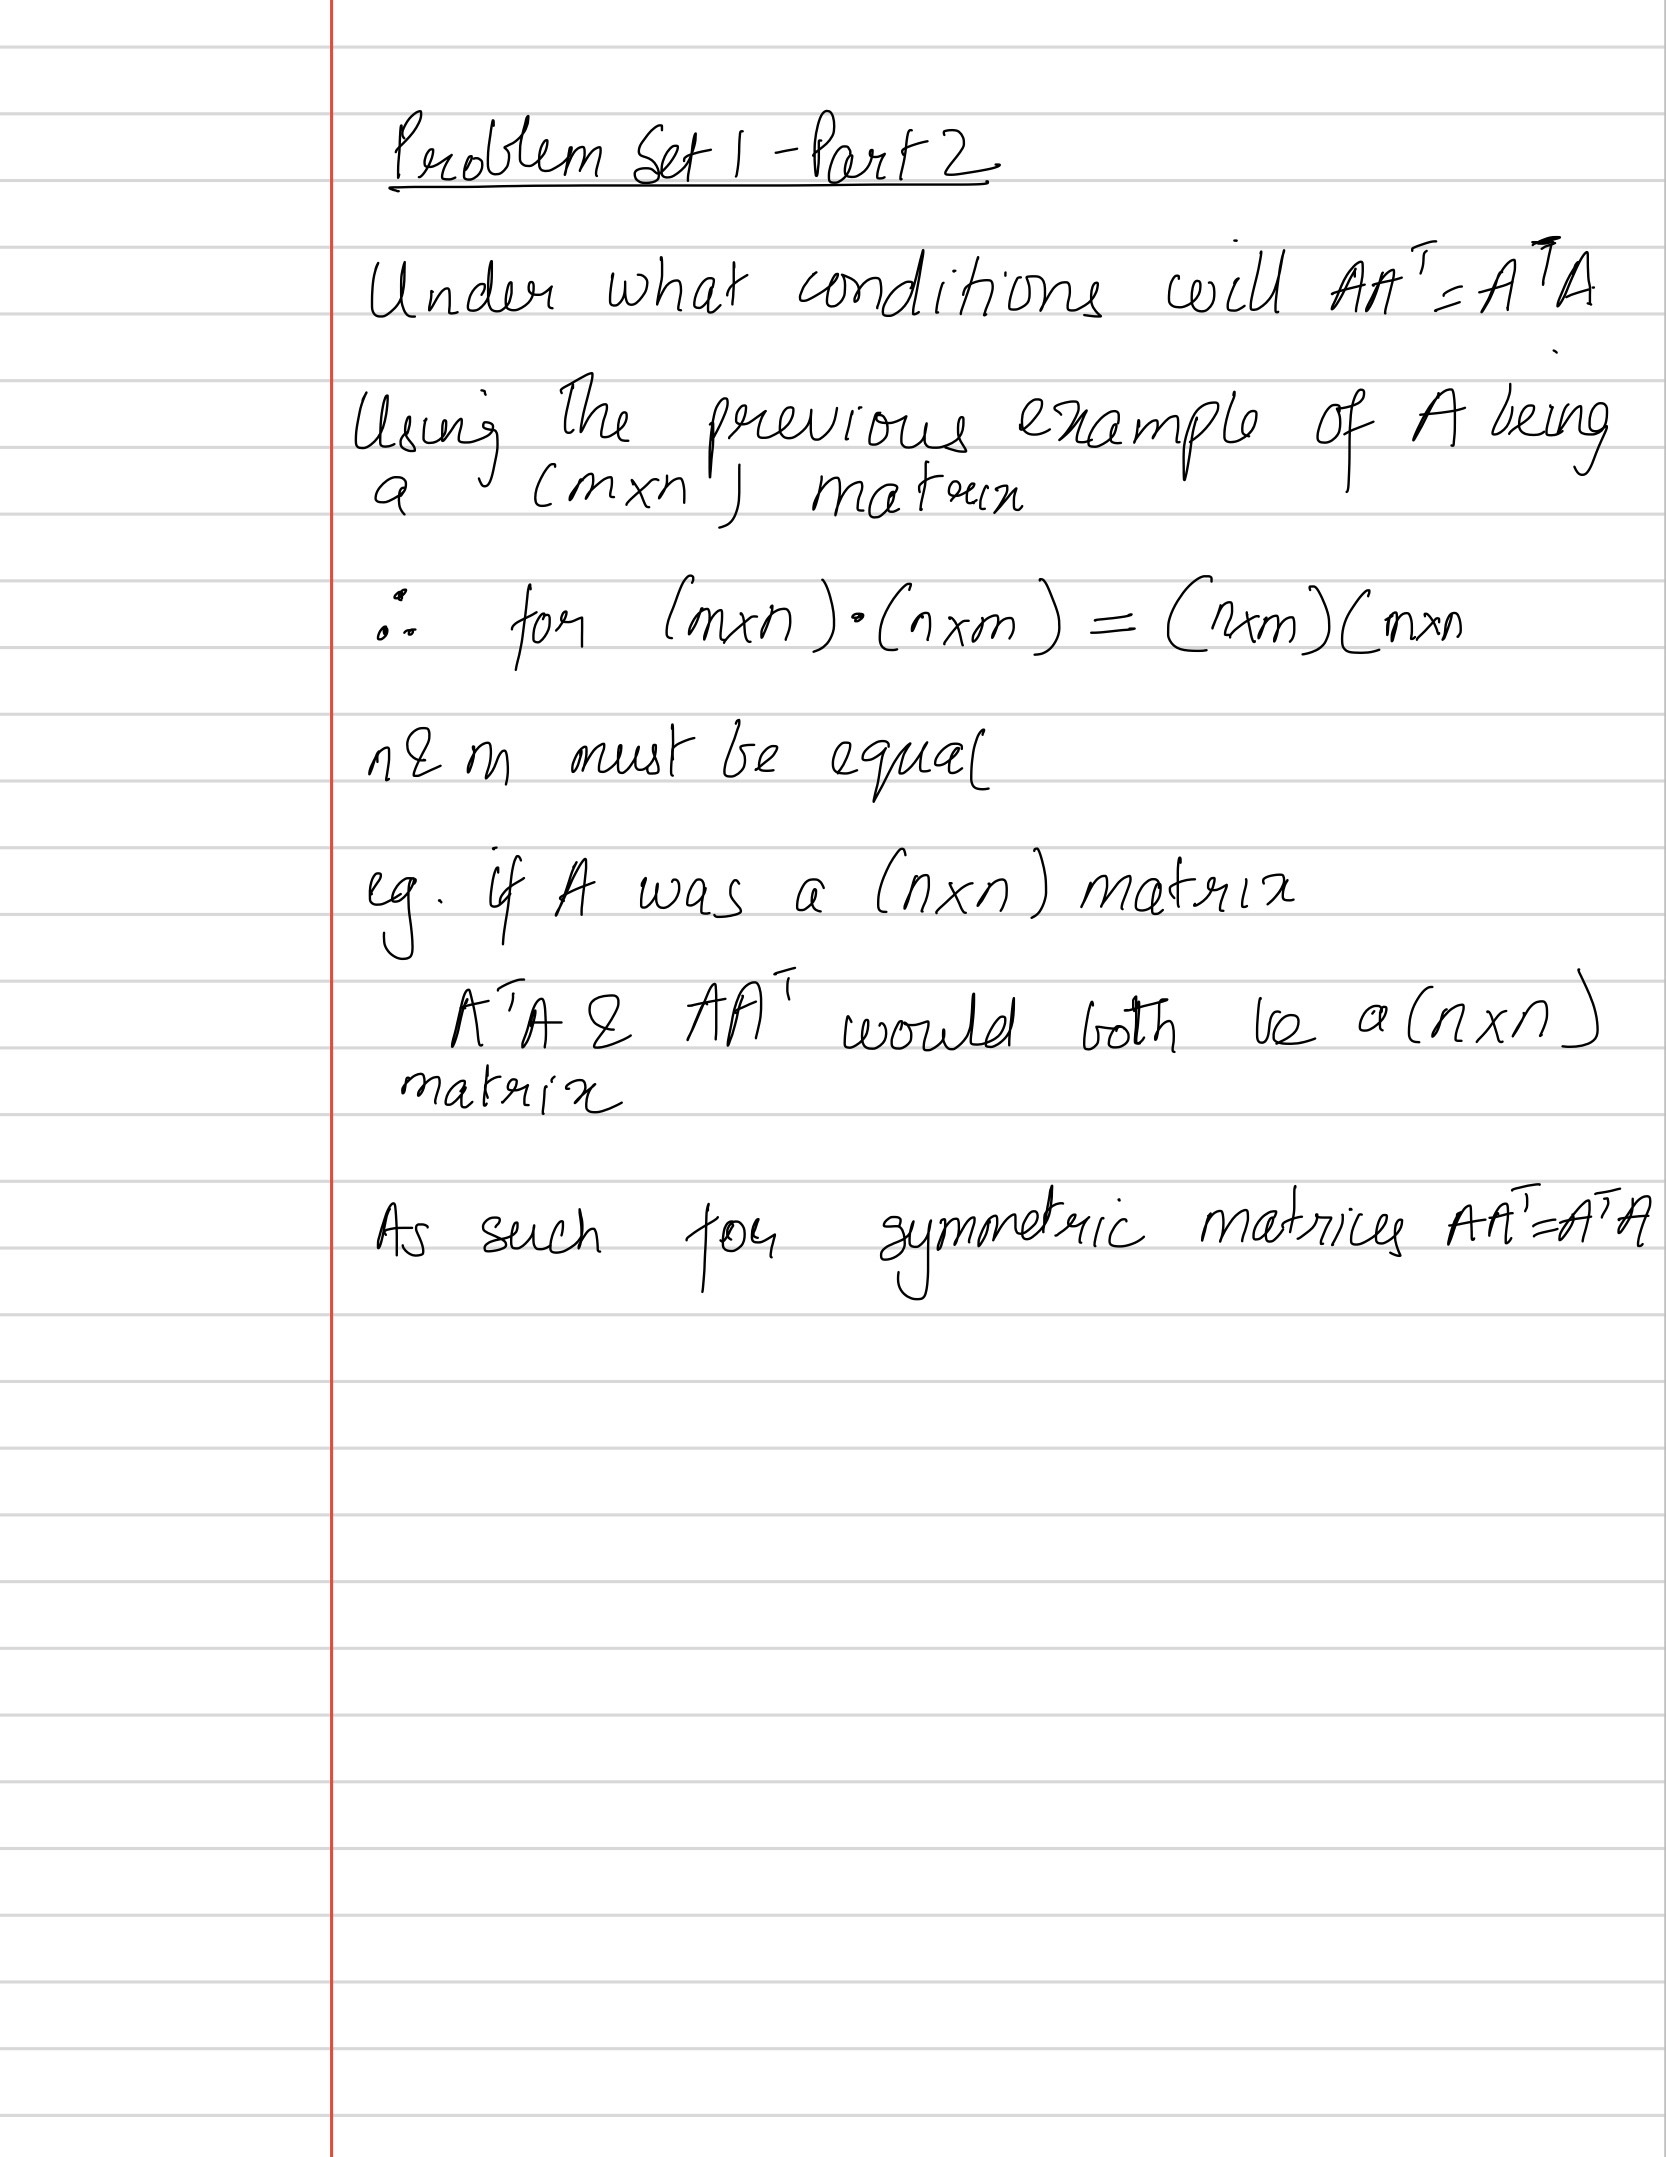 Problem Set 1 - Part 2
Under what conditions will AAᵀ = AᵀA
Using the previous example of A being
a (mxn) matrix
∴ for (mxn)·(nxm) = (nxm)(mxn
n & m must be equal
eg. if A was a (nxn) matrix
AᵀA & AAᵀ would both be a (nxn)
matrix
As such for symmetric matrices AAᵀ=AᵀA